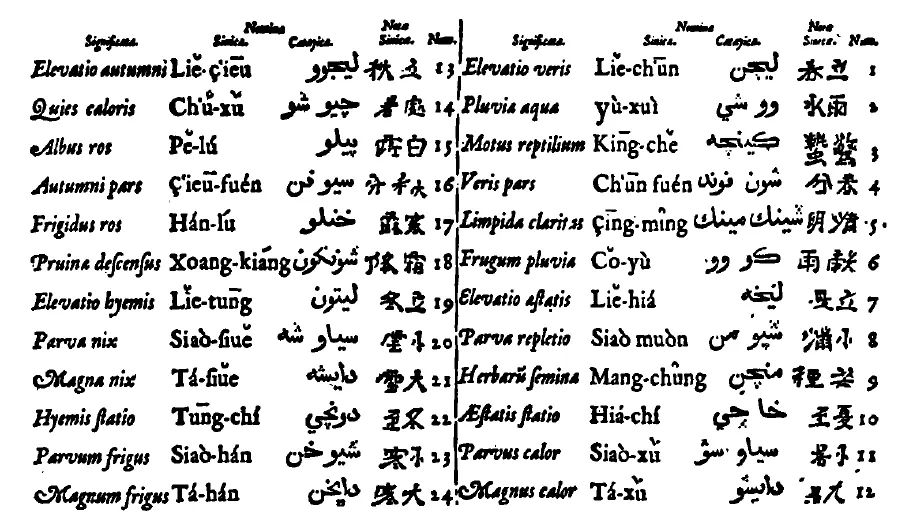 Nomina Nota
Significata. Sinica. Catayica. Sinica. Num.
Elevatio autumni Liĕ-ç'iēu ليچوو 秋立 13
Quies caloris Ch'ŭ-xŭ چيو شو 暑處 14
Albus ros Pĕ-lú پيلو 露白 15
Autumni pars Ç'ieū-fuén سيو فن 分秋 16
Frigidus ros Hán-lú خنلو 露寒 17
Pruina descensus Xoang-kiáng شونكون 降霜 18
Elevatio hyemis Liĕ-tung̅ ليتون 冬立 19
Parva nix Siaò-siuĕ سياو شه 雪小 20
Magna nix Tá-siŭe دايشه 雪大 21
Hyemis statio Tung̅-chí دونچي 至冬 22
Parvum frigus Siaò-hán شيو خن 寒小 23
Magnum frigus Tá-hán دايخن 寒大 24
Nomina Nota
Significata. Sinica. Catayica. Sinica. Num.
Elevatio veris Liĕ-ch'ūn ليچن 春立 1
Pluvia aqua yù-xuì وو شي 水雨 2
Motus reptilium King̅-chĕ كينچه 蟄驚 3
Veris pars Ch'ūn fuén شون فوند 分春 4
Limpida claritas Çing̅-mîng شينك مينك 明清 5
Frugum pluvia Cŏ-yù كو وو 雨穀 6
Elevatio æstatis Liĕ-hiá ليخه 夏立 7
Parva repletio Siaò muòn شيو من 滿小 8
Herbarū semina Mang-chûng منچن 種芒 9
Æstatis statio Hiá-chí خا چي 至夏 10
Parvus calor Siaò-xŭ سياو سو 暑小 11
Magnus calor Tá-xŭ دايشو 暑大 12